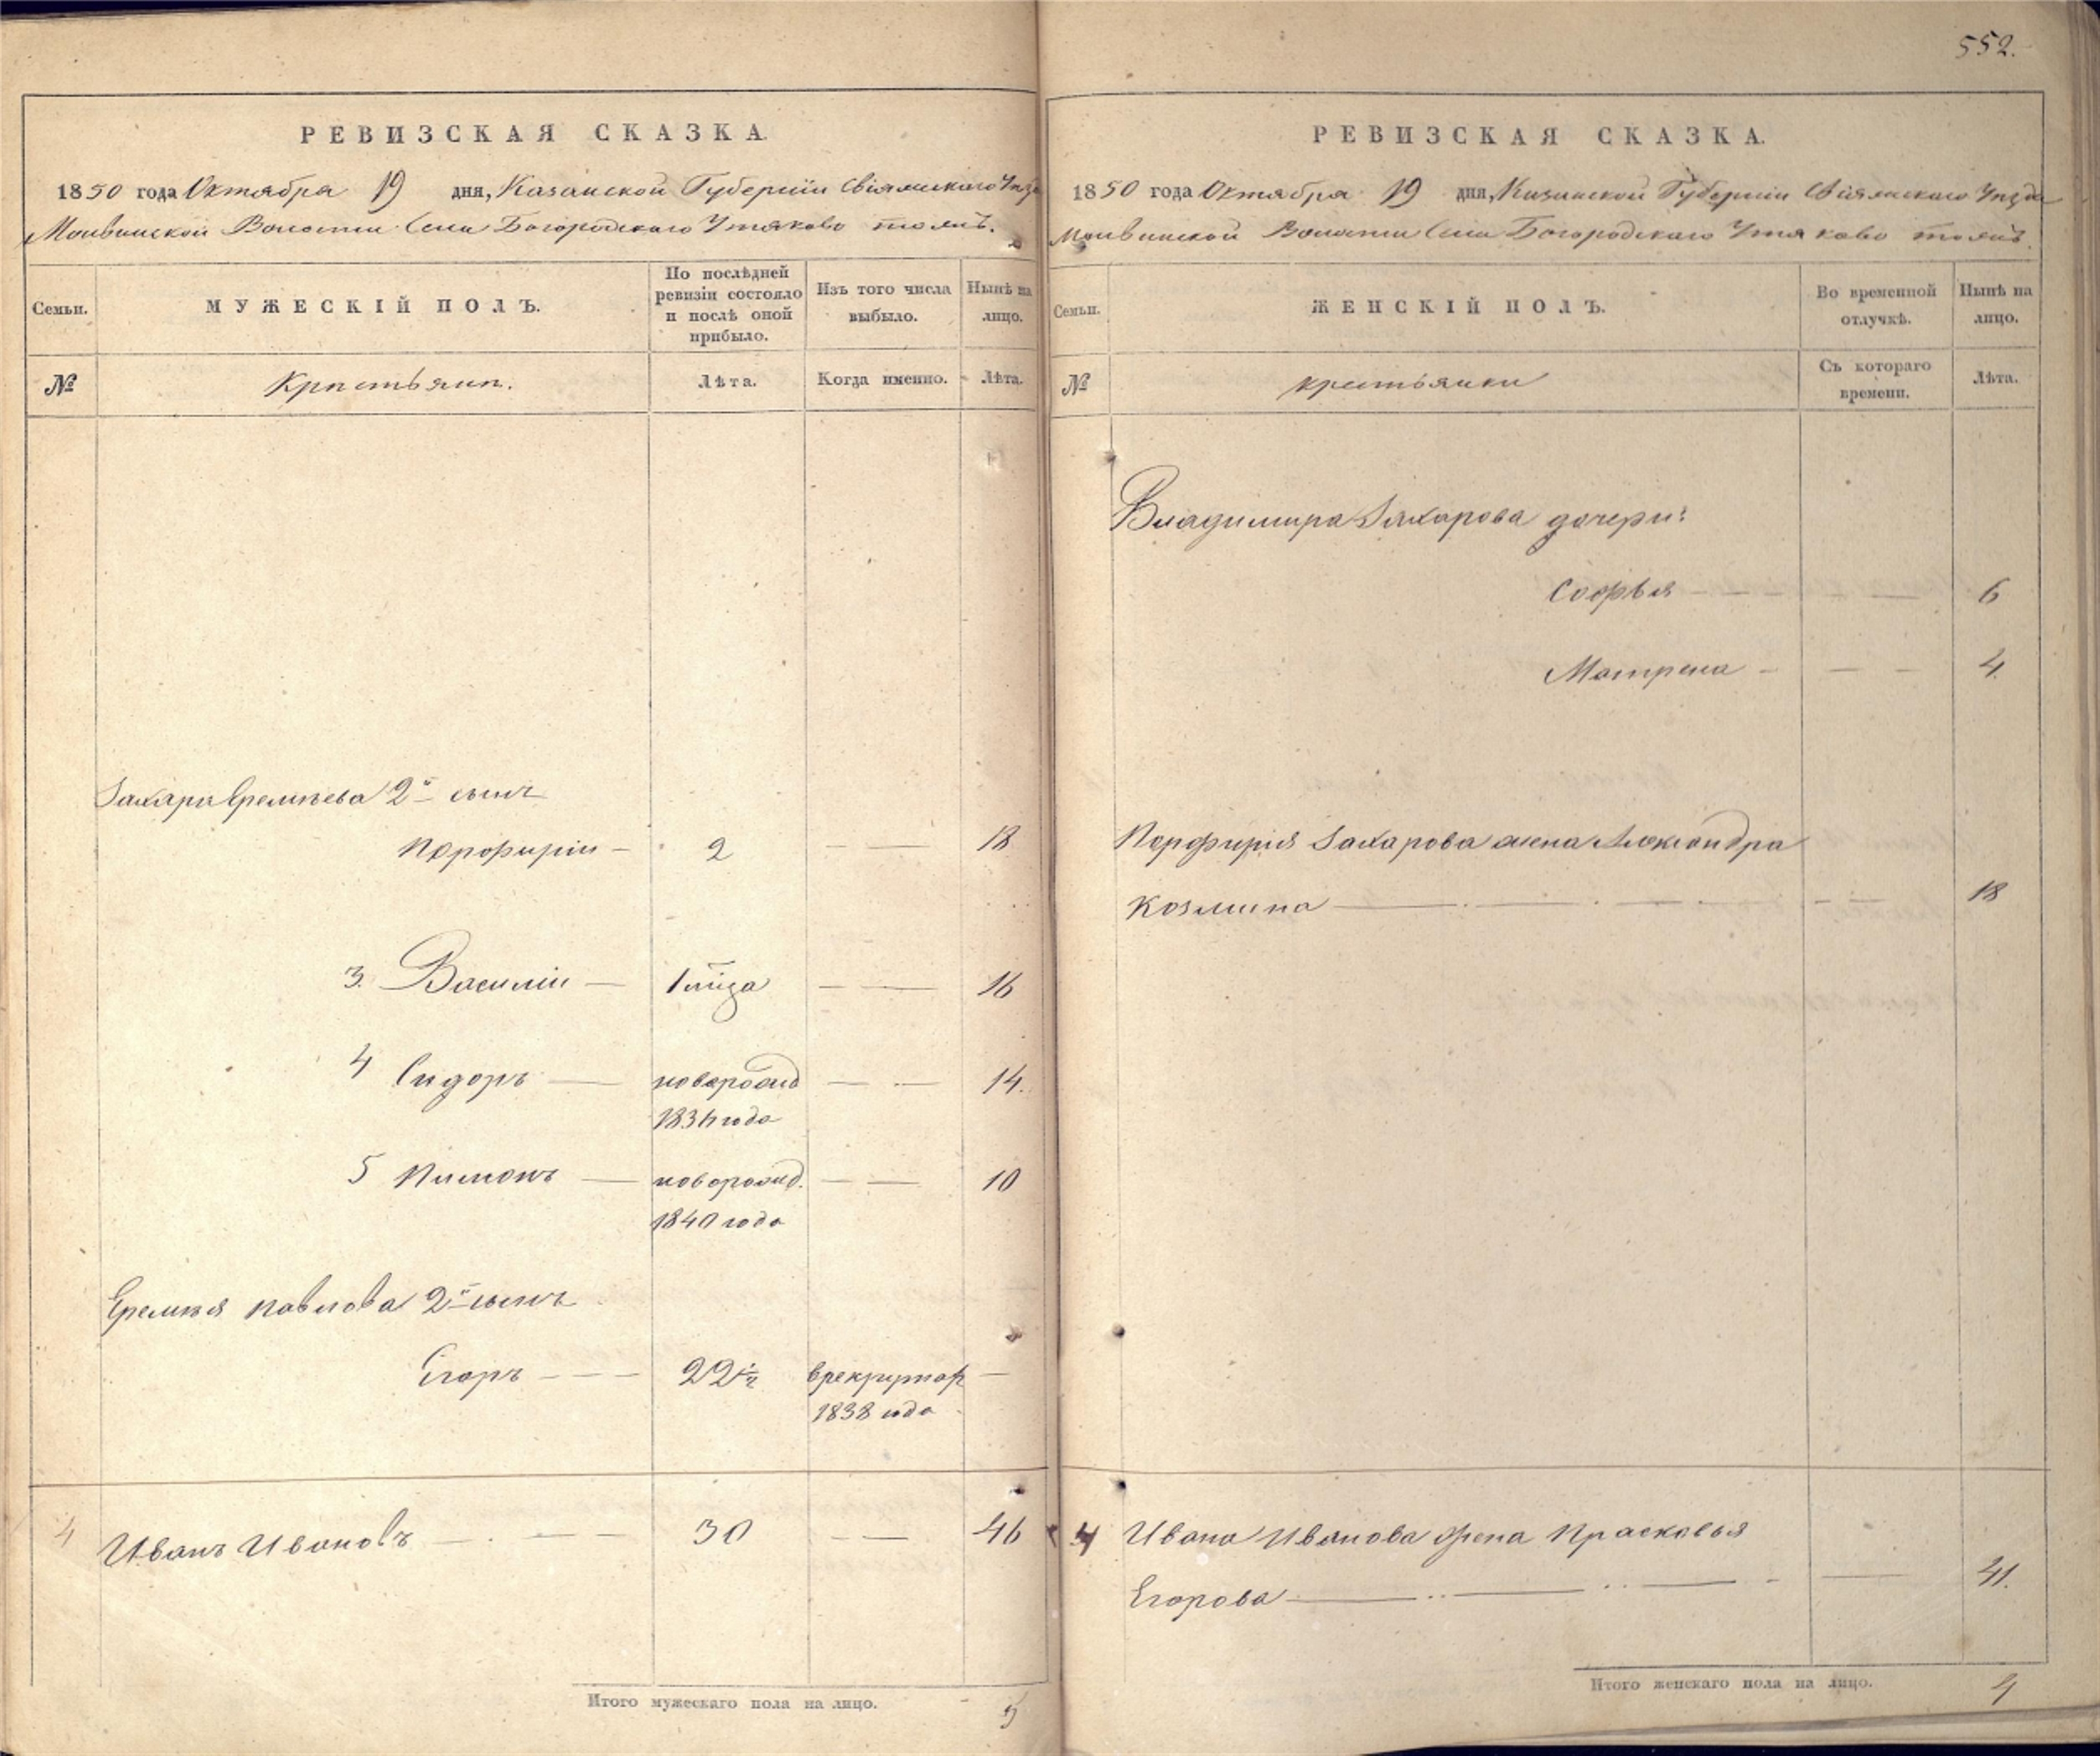 552.
РЕВИЗСКАЯ СКАЗКА.
1850 года Октября 19 дня, Казанской Губерніи Свіяжскаго Уѣзда
Волости Села Богородскаго Утяково тожъ.
Семьи.
МУЖЕСКІЙ ПОЛЪ.
По послѣдней ревизіи состояло и послѣ оной прибыло.
Изъ того числа выбыло.
Нынѣ на лицо.
№
Крестьяни.
Лѣта.
Когда именно.
Лѣта.
Захара Еремѣева 2й сынъ
Порофиріи 2 18
3. Василіи 1 мца 16
4 Сидоръ новорожд 14.
1836 года
5 Пимонъ новорожд. 10
1840 года
Еремѣя Павлова 2й сынъ
Егоръ 22½ в рекруты
1838 года
4 Иванъ Ивановъ 30 46
Итого мужескаго пола на лицо. 5
РЕВИЗСКАЯ СКАЗКА.
1850 года Октября 19 дня, Казанской Губерніи Свіяжскаго Уѣзда
Волости Села Богородскаго Утяково тожъ.
Семьи.
ЖЕНСКІЙ ПОЛЪ.
Во временной отлучкѣ.
Нынѣ на лицо.
№
крестьянки
Съ котораго времени.
Лѣта.
Владимира Захарова дочери:
Софья 6
Матрена 4.
Порфирія Захарова жена Александра
Козмина 18
4 Ивана Иванова жена Прасковья
Егорова 41.
Итого женскаго пола на лицо. 4